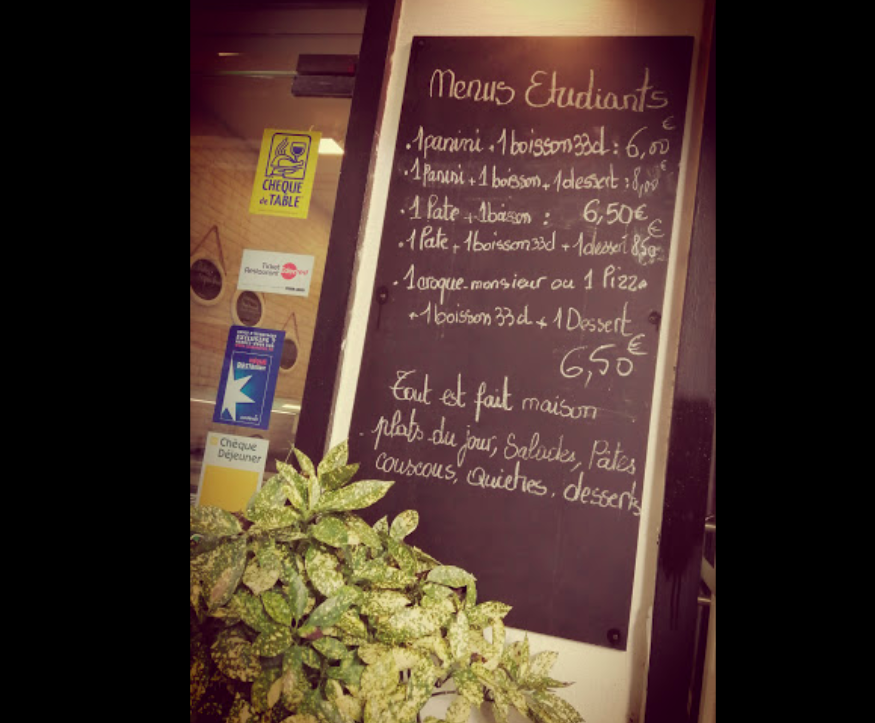 Menus Etudiants
. 1 panini + 1 boisson 33cl : 6,00€
. 1 Panini + 1 boisson + 1 dessert : 8,00€
. 1 Pate + 1 boisson : 6,50€
. 1 Pate + 1 boisson 33cl + 1 dessert 8,50€
. 1 croque-monsieur ou 1 Pizza
+ 1 boisson 33cl + 1 Dessert
6,50€
Tout est fait maison
plats du jour, Salades, Pâtes
couscous, Quiches, desserts
CHEQUE
de TABLE
Ticket
Restaurant
Chèque
Déjeuner